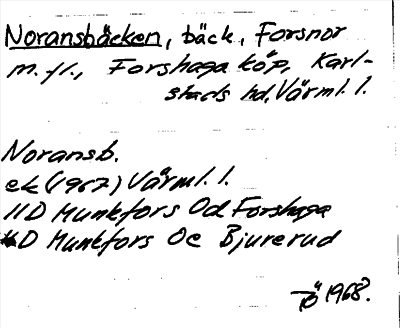 Noransbäcken, bäck, Forsnor
m.fl., Forshaga köp, Karl-
stads hd, Värml. l.
Noransb.
ek (1967) Värml. l.
11D Munkfors 0d Forshaga
11D Munkfors 0c Bjurerud
TÖ 1968.